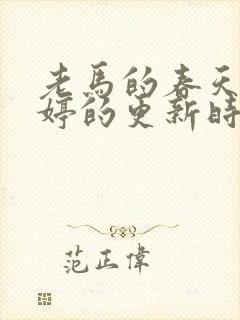 老馬的春天
婷的更新時
范正偉